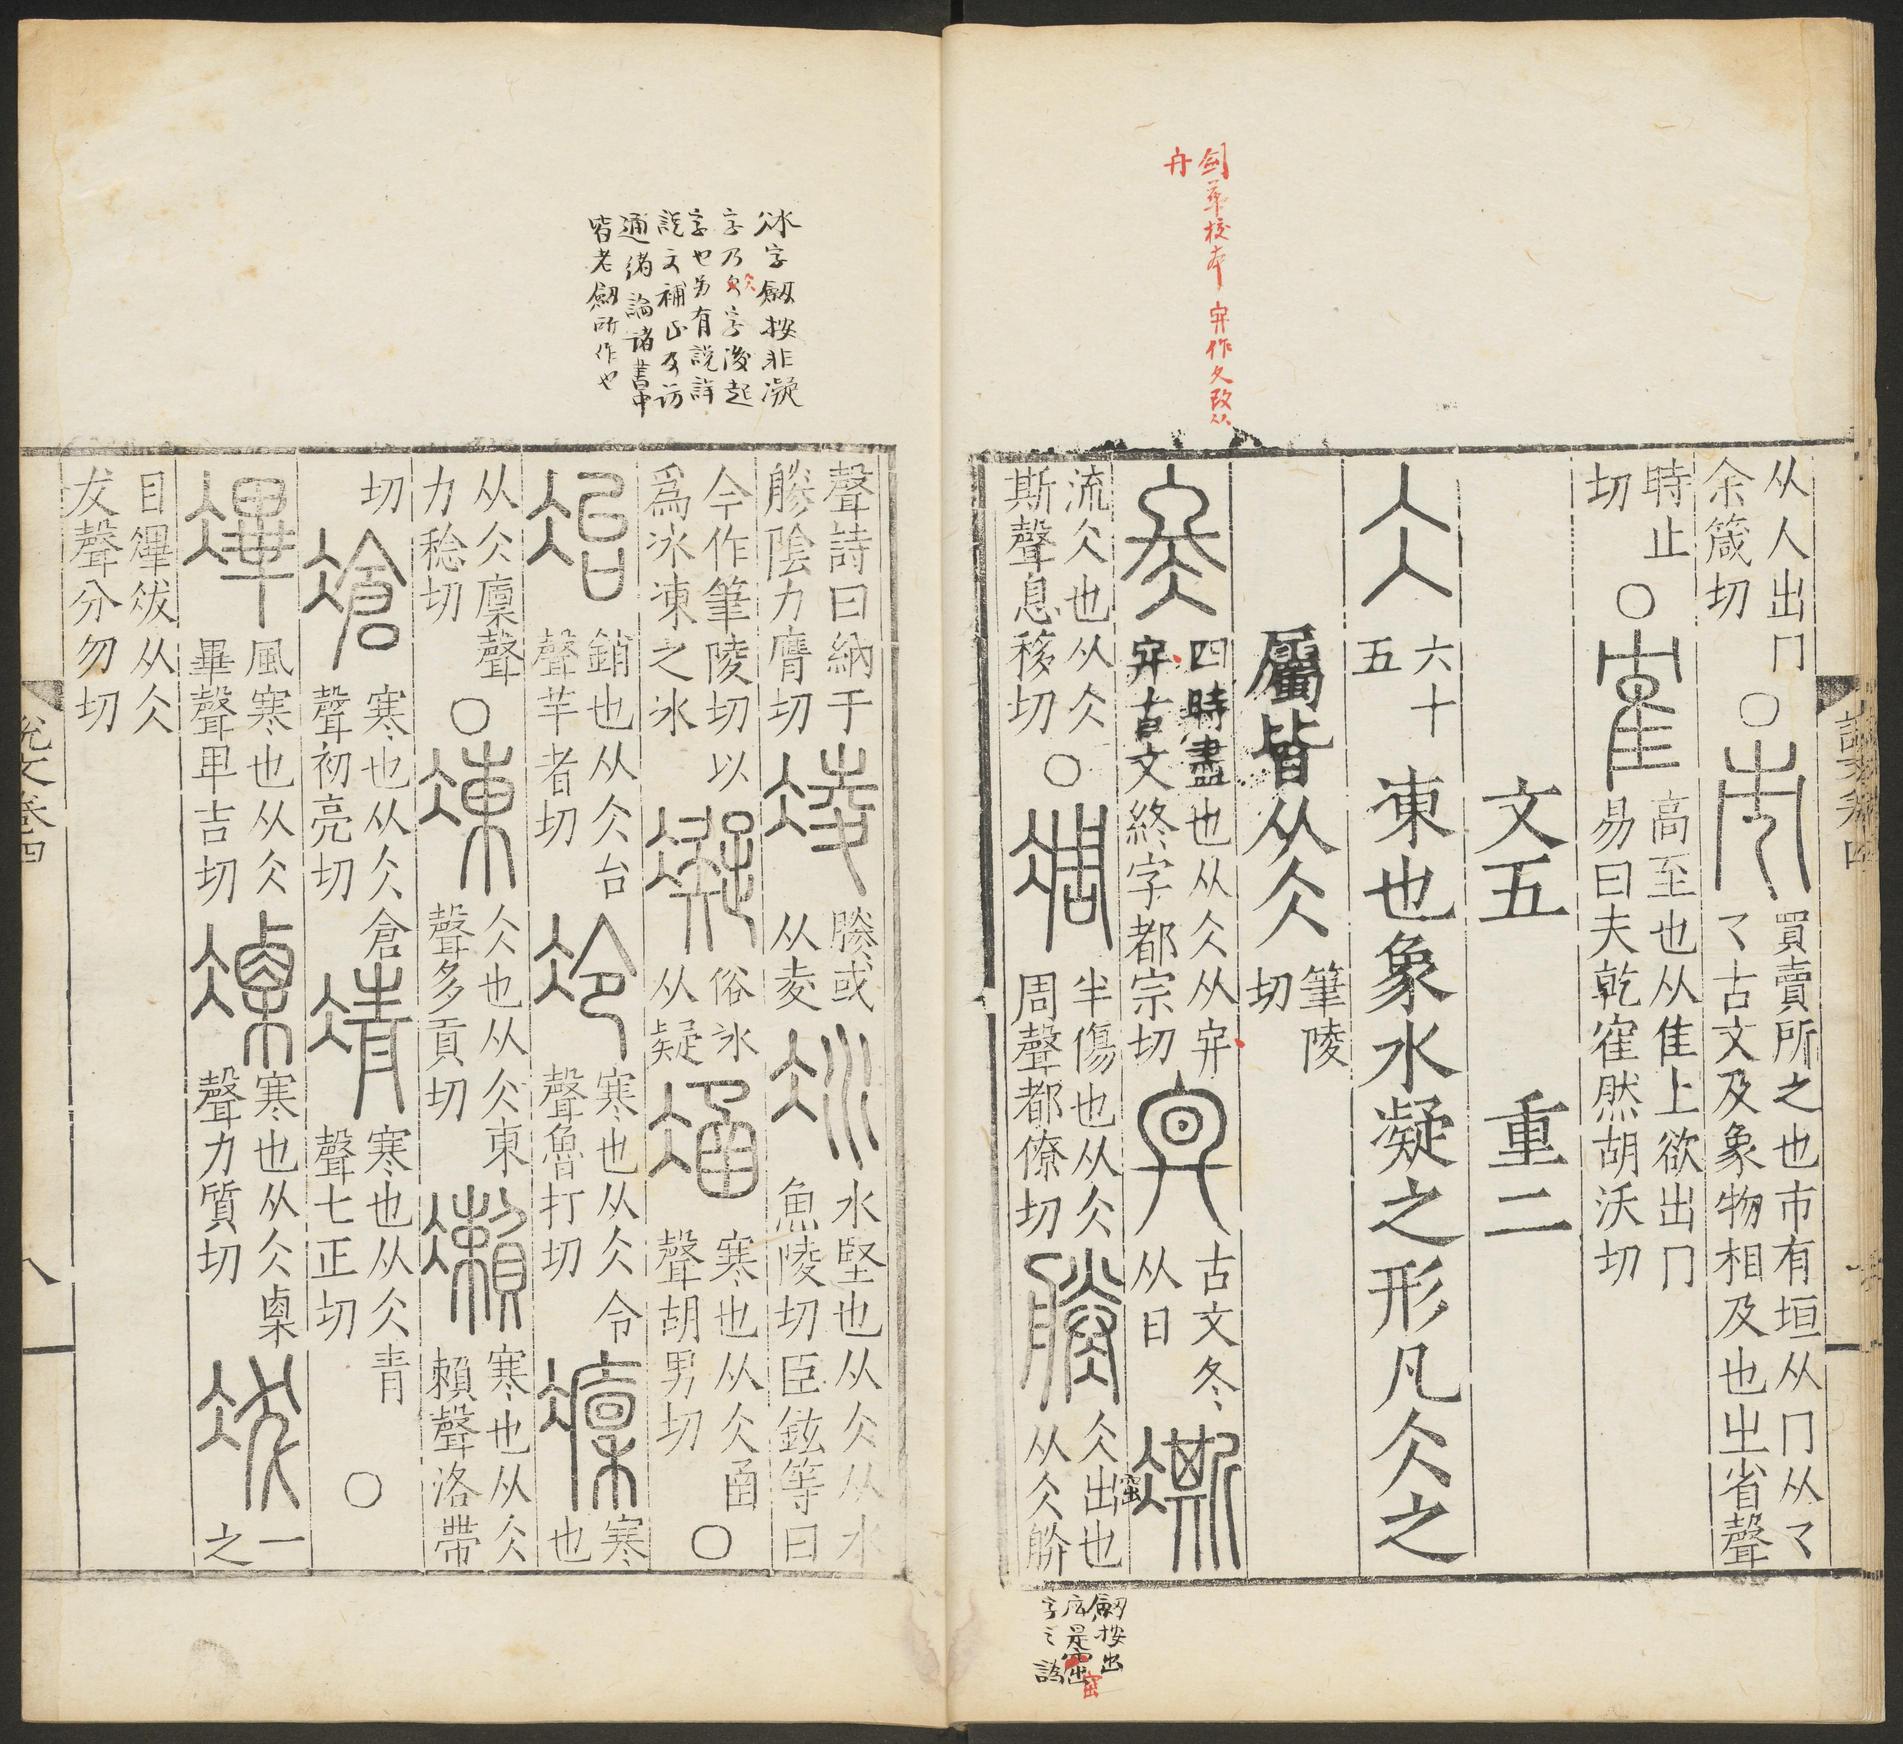 劍華校本
作夂改从
舟
从人出冂
余箴切
○市
買賣所之也市有垣从冂从乛
乛古文及象物相及也㞢省聲
時止
切
○隺
高至也从隹上欲出冂
易曰夫乾隺然胡沃切
文五 重二
仌
六十
五
東也象水凝之形凡仌之
屬皆从仌
筆陵
切
冬
四時盡也从仌从𡦼
𡦼古文終字都宗切
古文冬
从日
凘
流仌也从仌
斯聲息移切
○凋
半傷也从仌
周聲都僚切
勝
仌出也
从仌朕
窋
劔按出
应是窋
字之譌
窋
説文卷四
冰字劔按非凝
字乃仌字後起
字也另有説詳
説文補正及訪
通緒論諸書中
皆老劔所作也
聲詩曰納于
勝隂力膺切
凌
勝或
从夌
冰
水堅也从仌从水
魚陵切臣鉉等曰
今作筆陵切以
爲冰凍之冰
凝
俗冰
从疑
涵
寒也从仌圅
聲胡男切
○
冶
銷也从仌台
聲羊者切
冷
寒也从仌令
聲魯打切
凜
寒
也
从仌廩聲
力稔切
○凍
仌也从仌東
聲多貢切
瀨
寒也从仌
賴聲洛帶
切
滄
寒也从仌倉
聲初亮切
清
寒也从仌青
聲七正切
○
滭
風寒也从仌
畢聲卑吉切
凓
寒也从仌㮚
聲力質切
冹
一
之
日滭冹从仌
犮聲分勿切
説文卷四
八